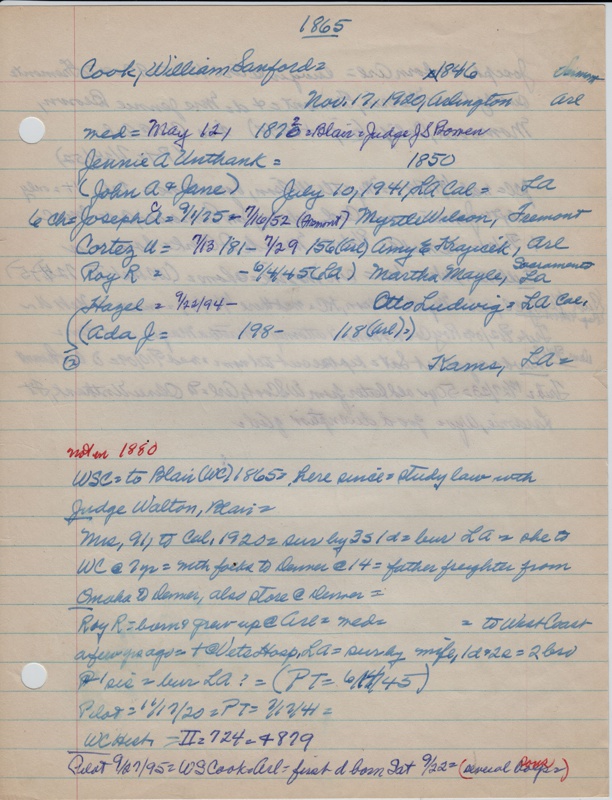 1865
Cook, William Sanford = x1846
Nov. 17, 1920, Arlington Arl
med = May 12, 1873 = Blair = Judge J S Bowen
Jennie A Unthank = 1850
(John A & Jane) July 10, 1941, LA Cal = LA
6 ch = Joseph A = 9/1/75 = 7/16/52 (Fremont) Myrtle Wilson, Fremont
Cortez U = 7/13/81 - 7/29/56 (Arl) Amy E Krajicek, Arl
Roy R = - 6/4/45 (LA) Martha Mayle, Sacramento LA
Hazel = 9/22/94 - Otto Ludwig = LA Cal,
(Ada J = 198- 118 (Arl) =)
② Kams, LA =
not in 1880
WSC = to Blair (WC) 1865 = here since = study law with
Judge Walton, Blair =
Mrs, 91, to Cal, 1920 = sur by 3s 1d = bur LA = she to
WC @ 7 yr = with folks to Denver @ 14 = father freighter from
Omaha to Denver, also store @ Denver =
Roy R = born & grew up @ Arl = med = = to West Coast
a few yrs ago = + @ Vets Hosp, LA = sur by wife, 1d + 2s = 2 bro
+ 1 sis = bur LA ? = (PT = 6/14/45)
Pilot = 11/17/20 = PT = 7/17/41 =
WC Hist = II = 724 = + 879
Pilot 9/27/95 = WS Cook = Arl = first d born Sat 9/22 = (several boys =)